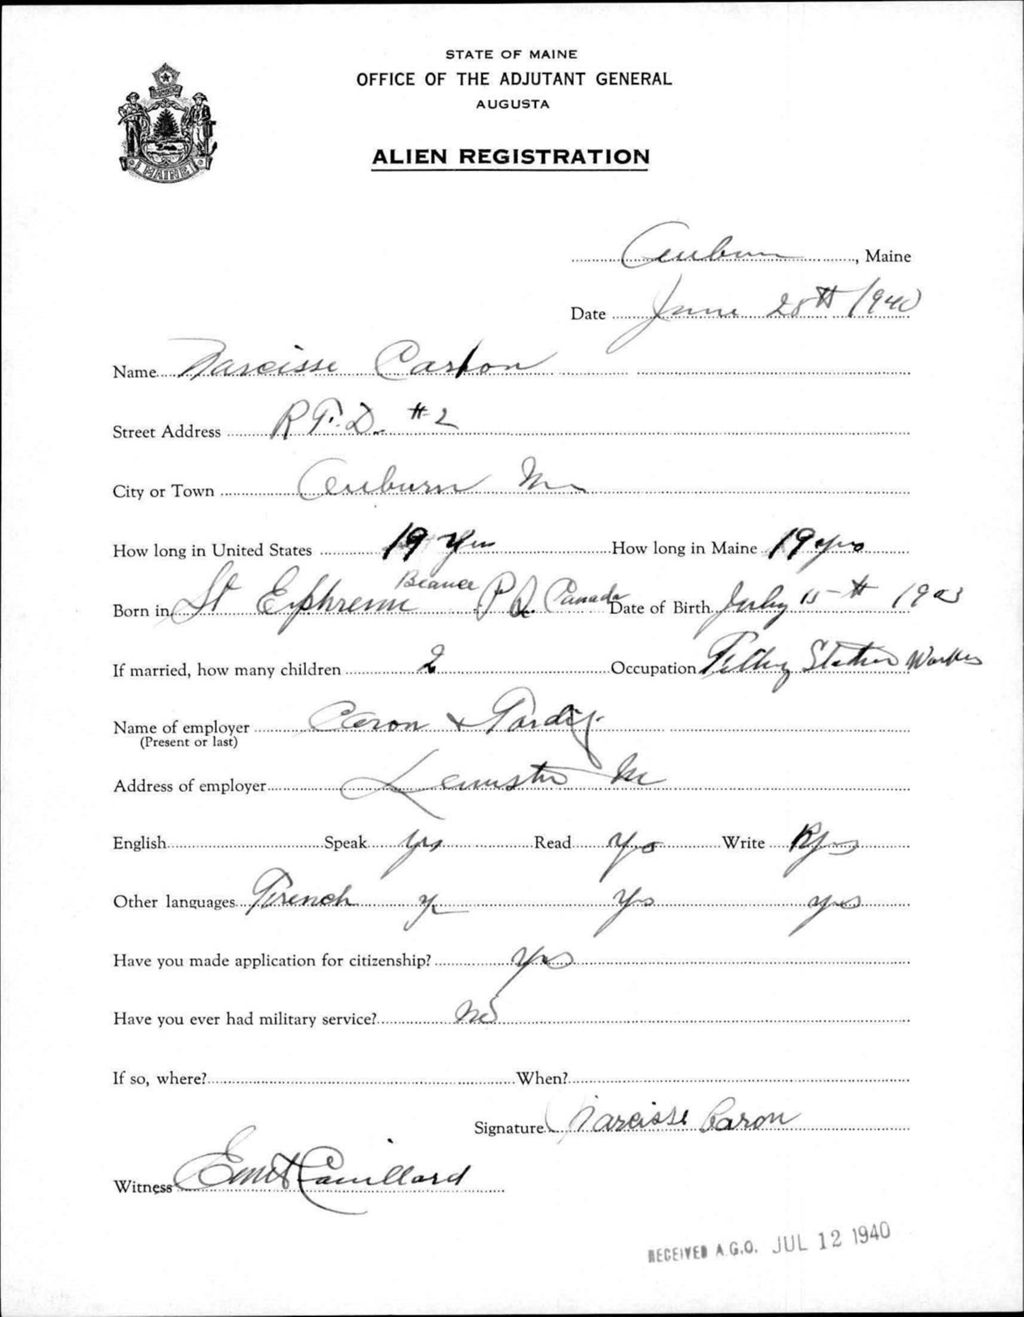 STATE OF MAINE
OFFICE OF THE ADJUTANT GENERAL
AUGUSTA
MAINE
ALIEN REGISTRATION
Auburn, Maine
Date June 28th 1940
Name Narcisse Caron
Street Address R.F.D. #2
City or Town Auburn Me
How long in United States 19 Yrs How long in Maine 19 yrs
Born in St Ephrem Beauce P Q. Canada Date of Birth July 15th 1903
If married, how many children 2 Occupation Filling Station Worker
Name of employer Caron & Tardif
(Present or last)
Address of employer Lewiston Me
English Speak yes Read Yes Write Yes
Other languages French y Yes yes
Have you made application for citizenship? Yes
Have you ever had military service? No
If so, where? When?
Signature Narcisse Caron
Witness Couillard
RECEIVED A.G.O. JUL 12 1940